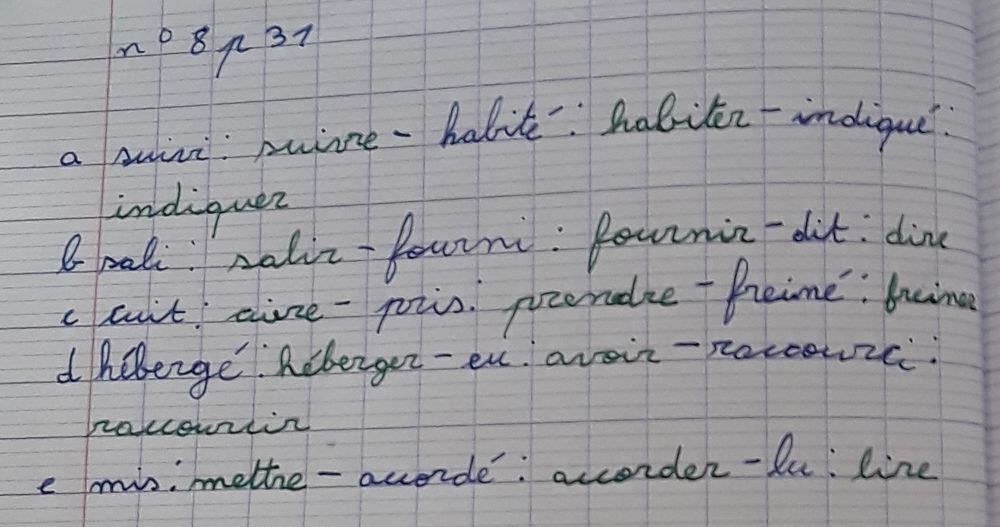 n° 8 p 31
a suivi : suivre - habité : habiter - indiqué :
indiquer
b sali : salir - fourni : fournir - dit : dire
c cuit : cuire - pris : prendre - freiné : freiner
d hébergé : héberger - eu : avoir - raccourci :
raccourcir
e mis : mettre - accordé : accorder - lu : lire